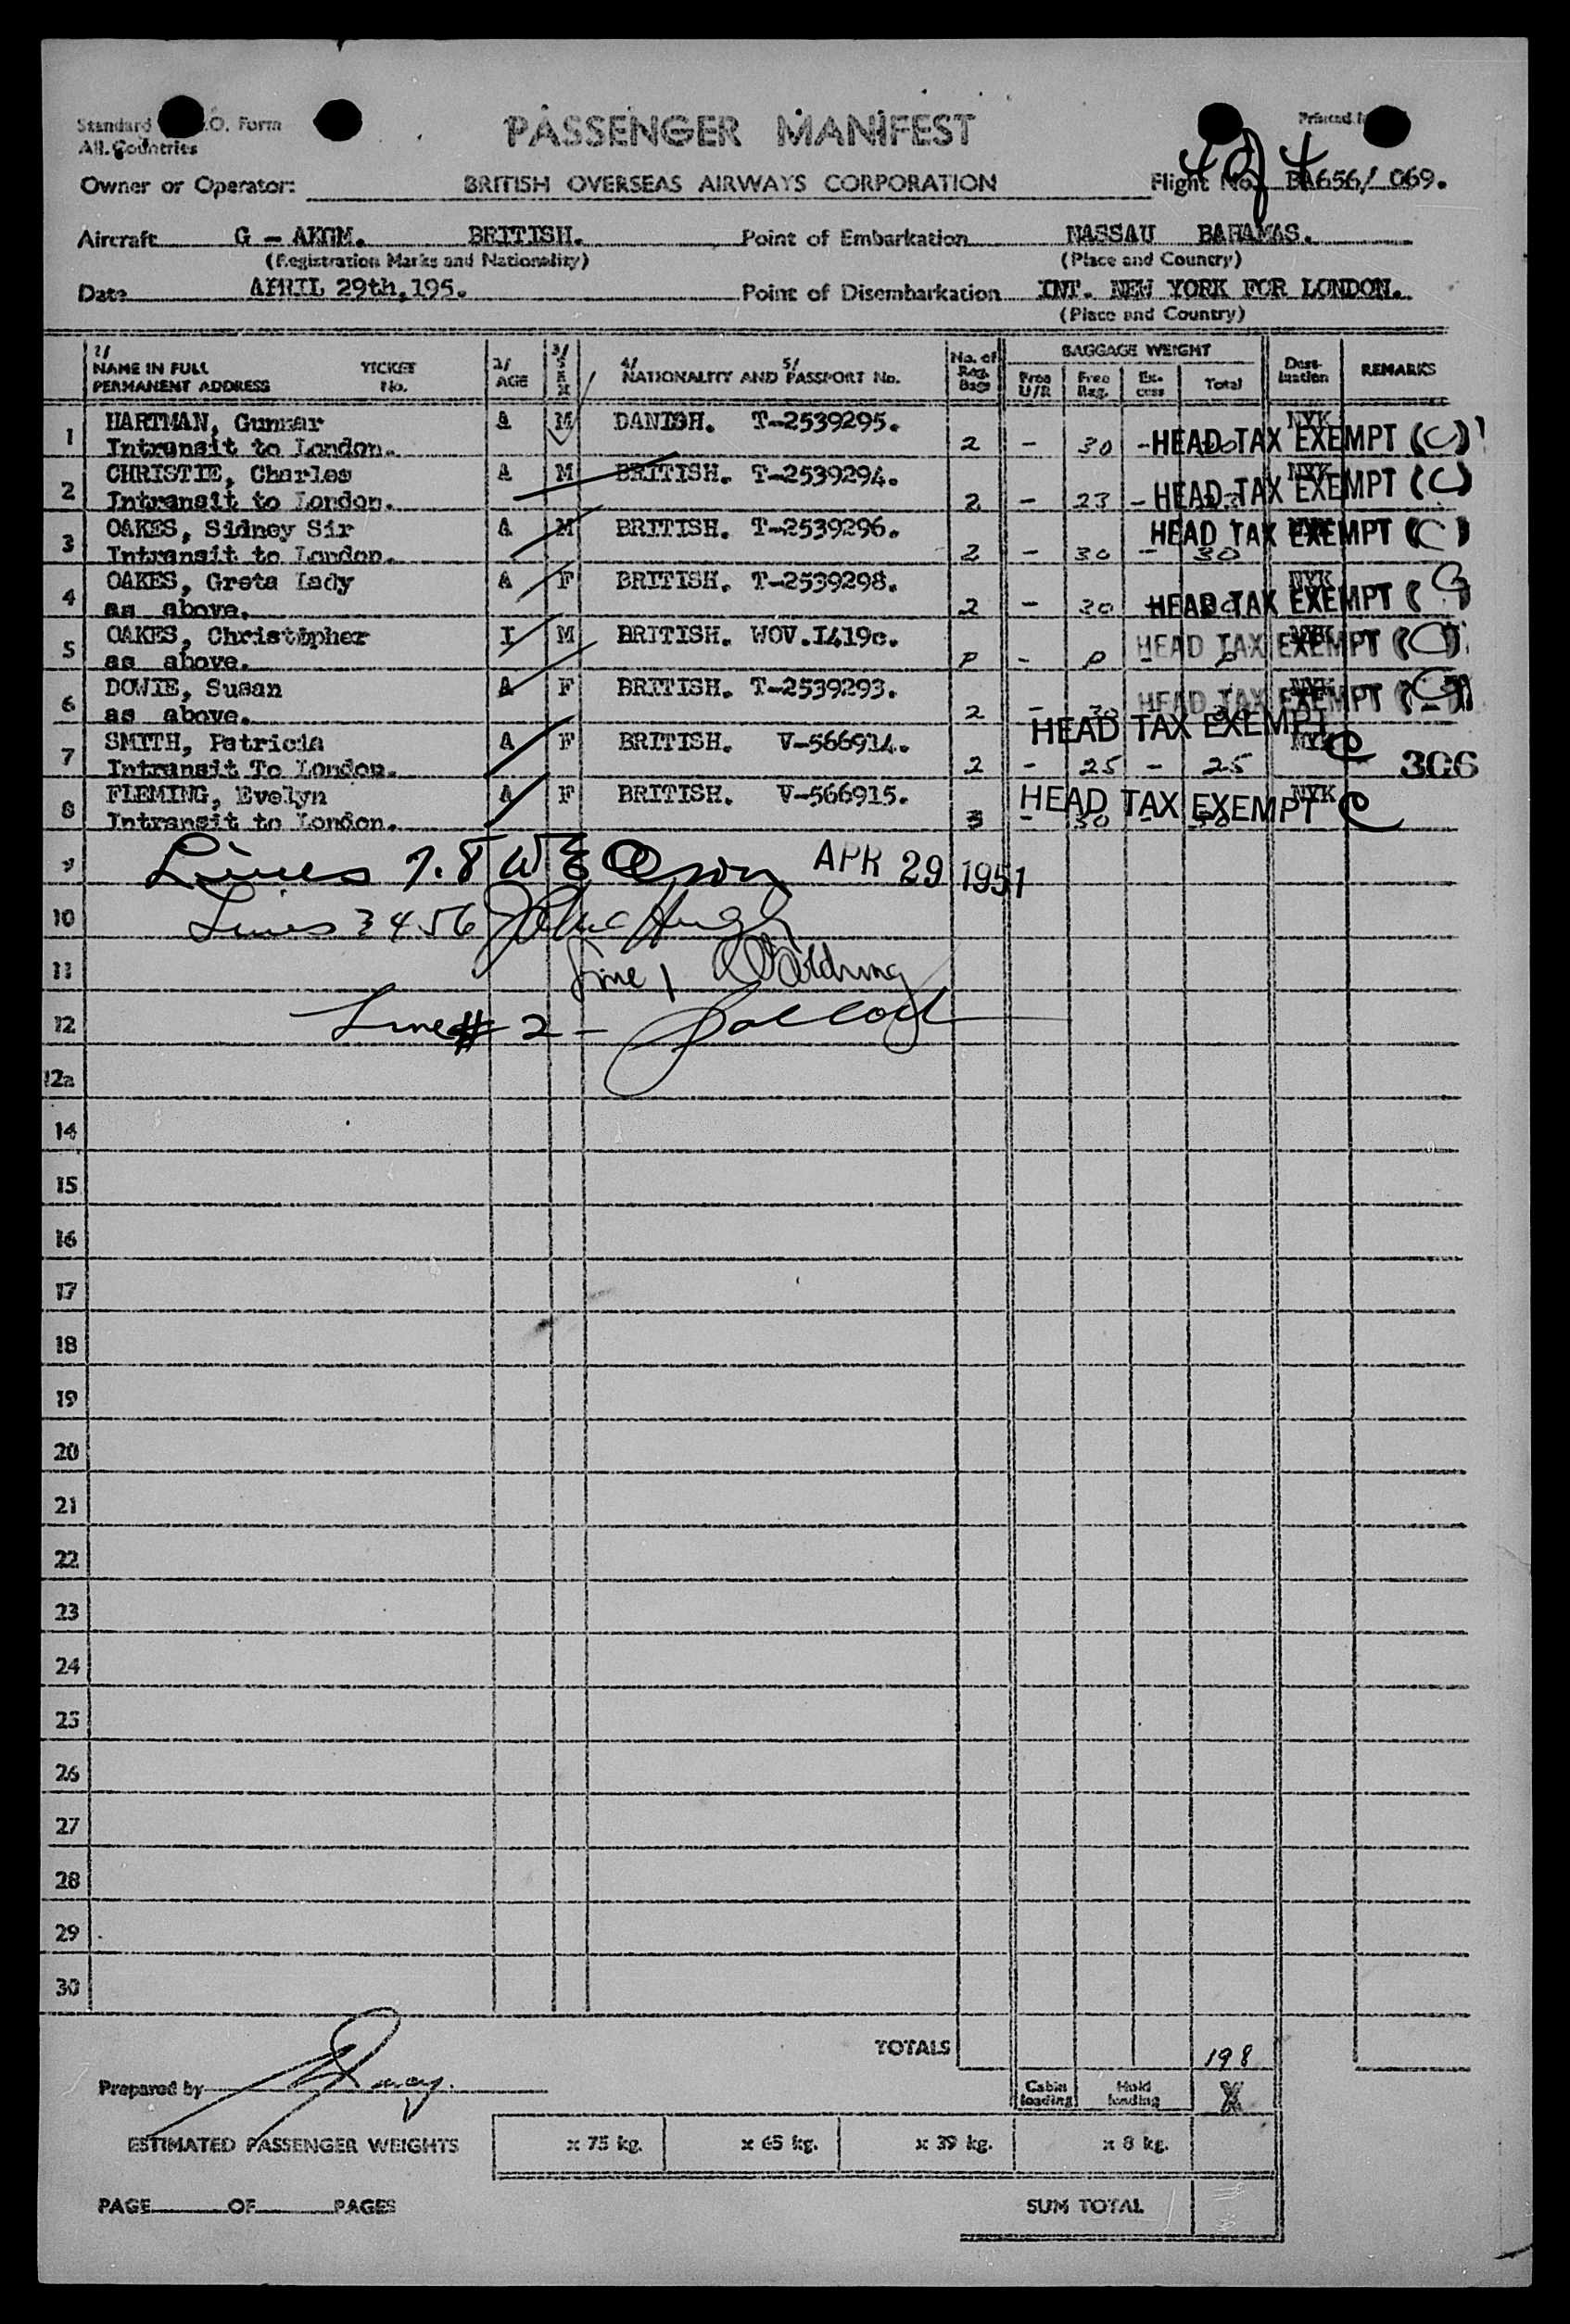 Standard .O. Form
All Countries
PASSENGER MANIFEST
Printed
4 of 4
Owner or Operator: BRITISH OVERSEAS AIRWAYS CORPORATION Flight No. BA656/ 069.
Aircraft G - AKGM. BRITISH. Point of Embarkation NASSAU BAHAMAS.
(Registration Marks and Nationality) (Place and Country)
Date APRIL 29th,195. Point of Disembarkation INT. NEW YORK FOR LONDON.
(Place and Country)
1/ NAME IN FULL PERMANENT ADDRESS TICKET No. 2/ AGE 3/ SEX 4/ NATIONALITY AND 5/ PASSPORT No. No. of Reg. Bags BAGGAGE WEIGHT Free U/R Free Reg. Ex-cess Total Dest-ination REMARKS
1 HARTMAN, Gunnar A M DANISH. T-2539295. NYK
Intransit to London. 2 - 30 - HEAD TAX EXEMPT (C)
2 CHRISTIE, Charles A M BRITISH. T-2539294. NYK
Intransit to London. 2 - 23 - HEAD TAX EXEMPT (C)
3 OAKES, Sidney Sir A M BRITISH. T-2539296. HEAD TAX EXEMPT (C)
Intransit to London. 2 - 30 - 30
4 OAKES, Greta Lady A F BRITISH. T-2539298. NYK
as above. 2 - 30 HEAD TAX EXEMPT (C)
5 OAKES, Christopher I M BRITISH. WOV.1419c. HEAD TAX EXEMPT (C)
as above. P - P - P
6 DOWIE, Susan A F BRITISH. T-2539293. HEAD TAX EXEMPT (C)
as above. 2 - 30
7 SMITH, Patricia A F BRITISH. V-566914. HEAD TAX EXEMPT C NYK
Intransit To London. 2 - 25 - 25 306
8 FLEMING, Evelyn A F BRITISH. V-566915. HEAD TAX EXEMPT C NYK
Intransit to London. 3 - 30 - 30
9 Lines 7.8 APR 29 1951
10 Lines 3 4 5 6
11 Line 1
12 Line # 2 -
12a
14
15
16
17
18
19
20
21
22
23
24
25
26
27
28
29
30
TOTALS 198
Prepared by Cabin loading Hold loading X
ESTIMATED PASSENGER WEIGHTS x 75 kg. x 65 kg. x 39 kg. x 8 kg.
PAGE OF PAGES SUM TOTAL